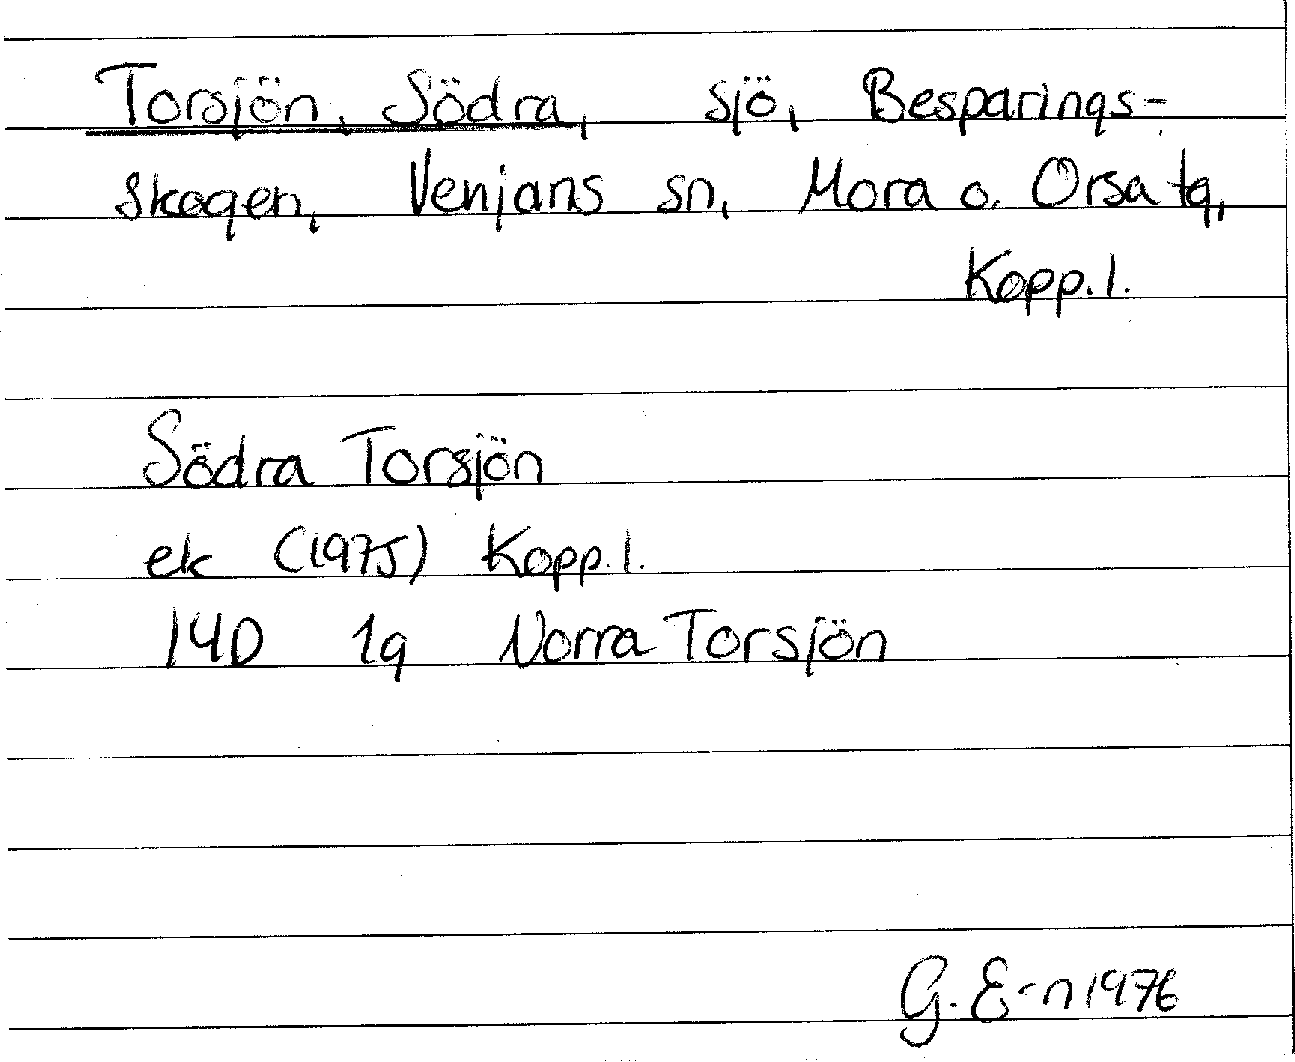 Torsjön, Södra, sjö, Besparings-
skogen, Venjans sn, Mora o. Orsa tg,
Kopp. l.
Södra Torsjön
ek (1975) Kopp. l.
14D 1g Norra Torsjön
G. E-n 1976